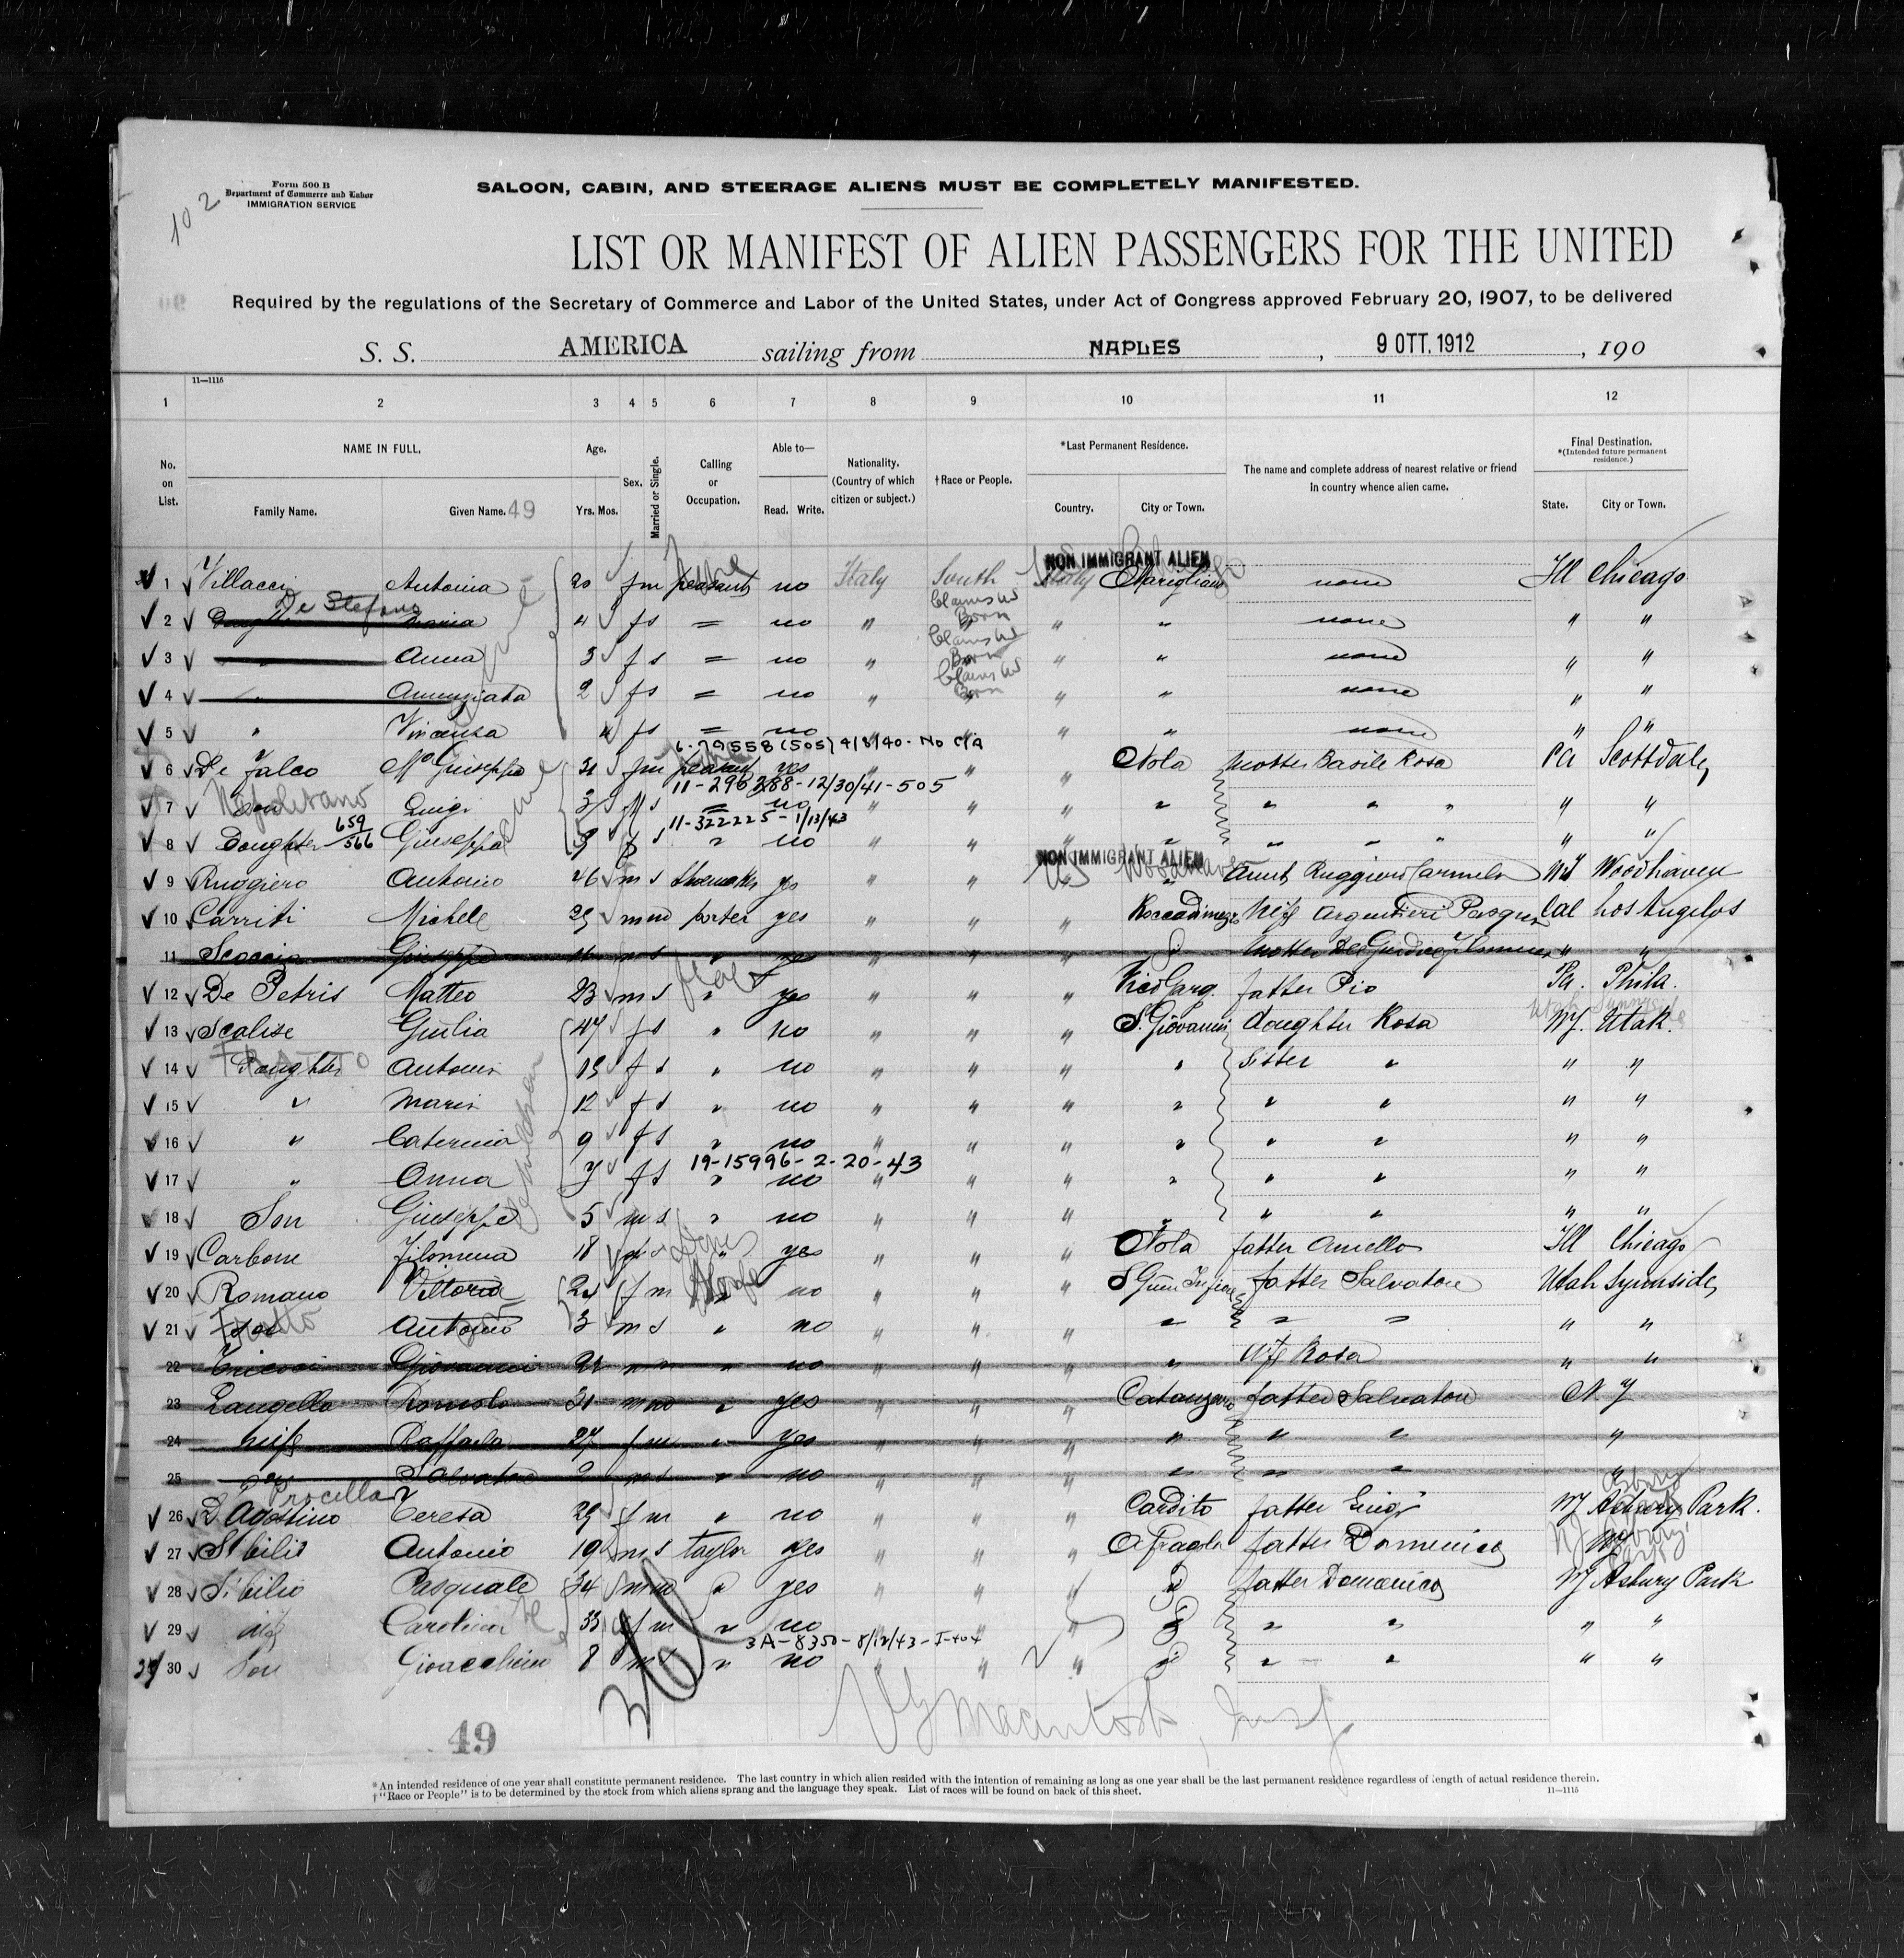 102
Form 500 B
Department of Commerce and Labor
IMMIGRATION SERVICE
SALOON, CABIN, AND STEERAGE ALIENS MUST BE COMPLETELY MANIFESTED.
LIST OR MANIFEST OF ALIEN PASSENGERS FOR THE UNITED
Required by the regulations of the Secretary of Commerce and Labor of the United States, under Act of Congress approved February 20, 1907, to be delivered
S. S. AMERICA sailing from NAPLES, 9 OTT. 1912, 190
11—1115
1 2 3 4 5 6 7 8 9 10 11 12
No. on List.
NAME IN FULL.
Family Name. Given Name. 49
Age.
Yrs. Mos.
Sex.
Married or Single.
Calling or Occupation.
Able to—
Read. Write.
Nationality. (Country of which citizen or subject.)
†Race or People.
*Last Permanent Residence.
Country. City or Town.
The name and complete address of nearest relative or friend in country whence alien came.
Final Destination.
*(Intended future permanent residence.)
State. City or Town.
NON IMMIGRANT ALIEN
1 Villacci Antonia 20 f m peasant no Italy South Italy Marigliano none Ill Chicago
De Stefano
Claims US Born
2 Maria 4 f s = no " " " none " "
Claims US Born
3 " Anna 3 f s = no " " " " none " "
Claims US Born
4 " Annunziata 2 f s = no " " " " none " "
5 " Vincensa f s = no " " none " "
6-79558 (505) 4/8/40 - No C/A
6 De Falco Ma Giuseppa 31 f m peasant yes " " " Nola mother Basile Rosa Pa Scottdale
11-296288-12/30/41-505
7 Napoletano Luigi 3 m s = no " " " " " " " " "
11-322225-1/13/43
8 Daughter 659/566 Giuseppa 9 f s " no " " " " " " " " "
NON IMMIGRANT ALIEN
9 Ruggiero Antonio 26 m s Shoemaker yes " " US Woodhaven aunt Ruggiero Carmela Woodhaven
10 Carriti Michele 29 m m porter yes " " " wife Argentieri Cal Los Angelos
11 Scoccia Giuseppe 16 m s " yes " " " " mother " "
12 De Petris Matteo 23 m s " yes " " " Vico Garg. father Pio Pa. Phila.
13 Scalise Giulia 47 f s " no " " " S. Giovanni daughter Rosa Utah
14 Daughter f s " no " " " " Sister " " "
15 " Maria 12 f s " no " " " " " " " "
16 " Caterina 9 f s " no " " " " " " " "
19-15996-2-20-43
17 " Anna 7 f s " no " " " " " " " "
18 Son Giuseppe 5 m s " no " " " " " " " "
19 Carbone Filomena 18 f s " yes " " " Nola father Aniello Ill Chicago
20 Romano Vittoria 24 f m " no " " " father Salvatore Utah Synnside
21 Son Antonio 3 m s " no " " " " " " " "
22 Giovanni m m " no " " " " wife Rosa " "
23 Romolo 31 m m " yes " " " Catanzaro father Salvatore N.Y.
24 wife Raffaela 27 f m " yes " " " " " " "
25 son Salvatore 2 m s " no " " " " " " "
Procella
26 D'Agostino Teresa 29 f m " no " " " Cardito father Luigi NJ Asbury Park.
27 Sibilio Antonio 19 m s taylor yes " " " Afragola father Domenico NJ
28 Sibilio Pasquale 34 m m " yes " " " " father Domenico NJ Asbury Park
29 wife Carolina 33 f m " no " " " " " " " "
3A-8350-8/12/43-I-404
30 Son Gioacchino 8 m s " no " " " " " " " "
Macintosh, Insp.
49
*An intended residence of one year shall constitute permanent residence. The last country in which alien resided with the intention of remaining as long as one year shall be the last permanent residence regardless of length of actual residence therein.
†"Race or People" is to be determined by the stock from which aliens sprang and the language they speak. List of races will be found on back of this sheet. 11—1115